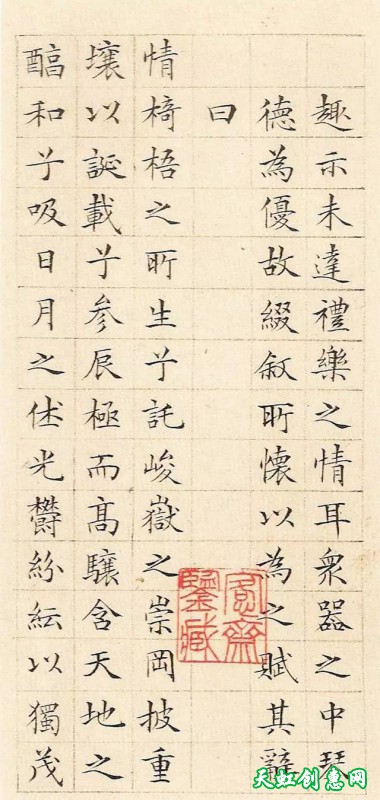 趣示未達禮樂之情耳衆器之中琴
德為優故綴敘所懷以為之賦其辭
曰
情椅梧之所生兮託峻嶽之崇岡披重
壤以誕載兮參辰極而高驤含天地之
醕和兮吸日月之休光鬱紛紜以獨茂
齋鑒藏
天虹创意网